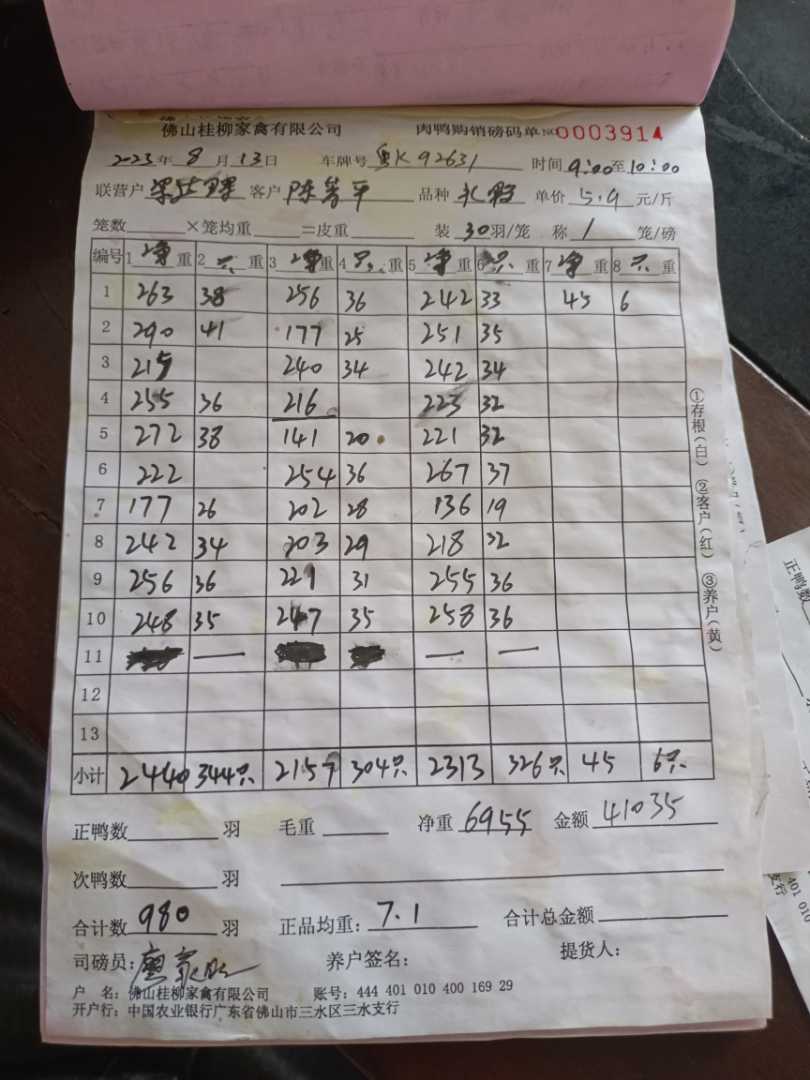 佛山桂柳家禽有限公司 肉鸭购销磅码单 №0003914
2023年 8 月 13日 车牌号 粤K92631 时间 9:00至10:00
联营户 客户 陈 平 品种 单价 5.9 元/斤
笼数 ×笼均重 =皮重 装 30羽/笼 称 1 笼/磅
编号 1 净重 2 只 重 3 净重 4 只 重 5 净重 6 只 重 7 净重 8 只 重
1 263 38 256 36 242 33 45 6
2 290 41 177 25 251 35
3 215 240 34 242 34
4 255 36 216 223 32
5 272 38 141 20 221 32
6 222 254 36 267 37
7 177 26 202 28 136 19
8 242 34 203 29 218 32
9 256 36 221 31 255 36
10 248 35 247 35 258 36
11 — — —
12
13
小计 2440 344只 2157 304只 2313 326只 45 6只
正鸭数 羽 毛重 净重 6955 金额 41035
次鸭数 羽
合计数 980 羽 正品均重: 7.1 合计总金额
司磅员: 廖 养户签名: 提货人:
户 名: 佛山桂柳家禽有限公司 账号: 444 401 010 400 169 29
开户行: 中国农业银行广东省佛山市三水区三水支行
①存根(白) ②客户(红) ③养户(黄)
正鸭数
401 010
支行